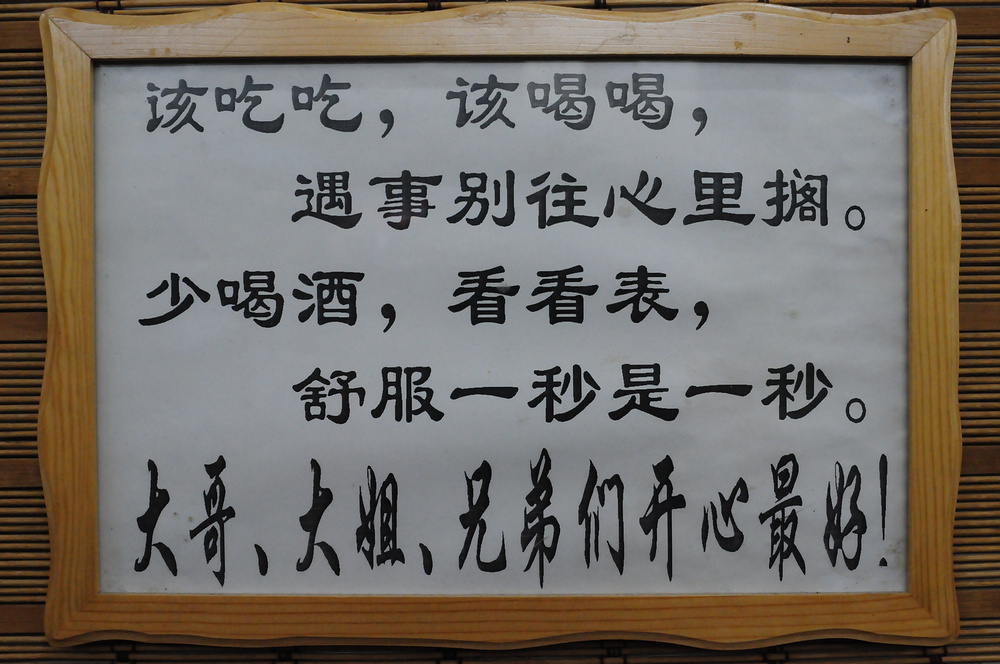 该吃吃，该喝喝，
遇事别往心里搁。
少喝酒，看看表，
舒服一秒是一秒。
大哥、大姐、兄弟们开心最好！